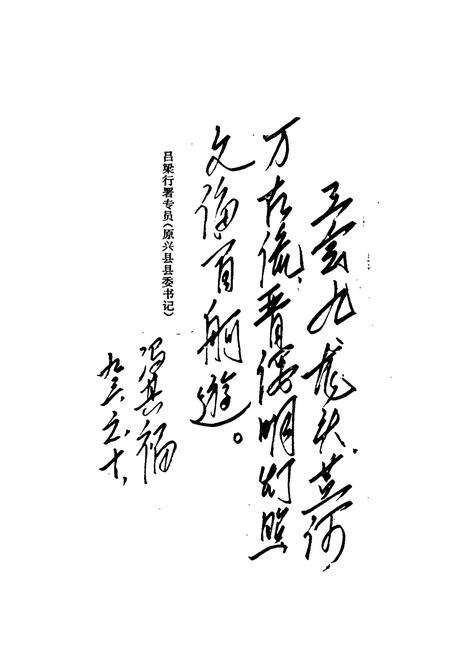 会九龙头、黄河
万古流,晋绥明灯照
文海百舸遊。
吕梁行署专员(原兴县县委书记)
冯其福
九三、六、十、